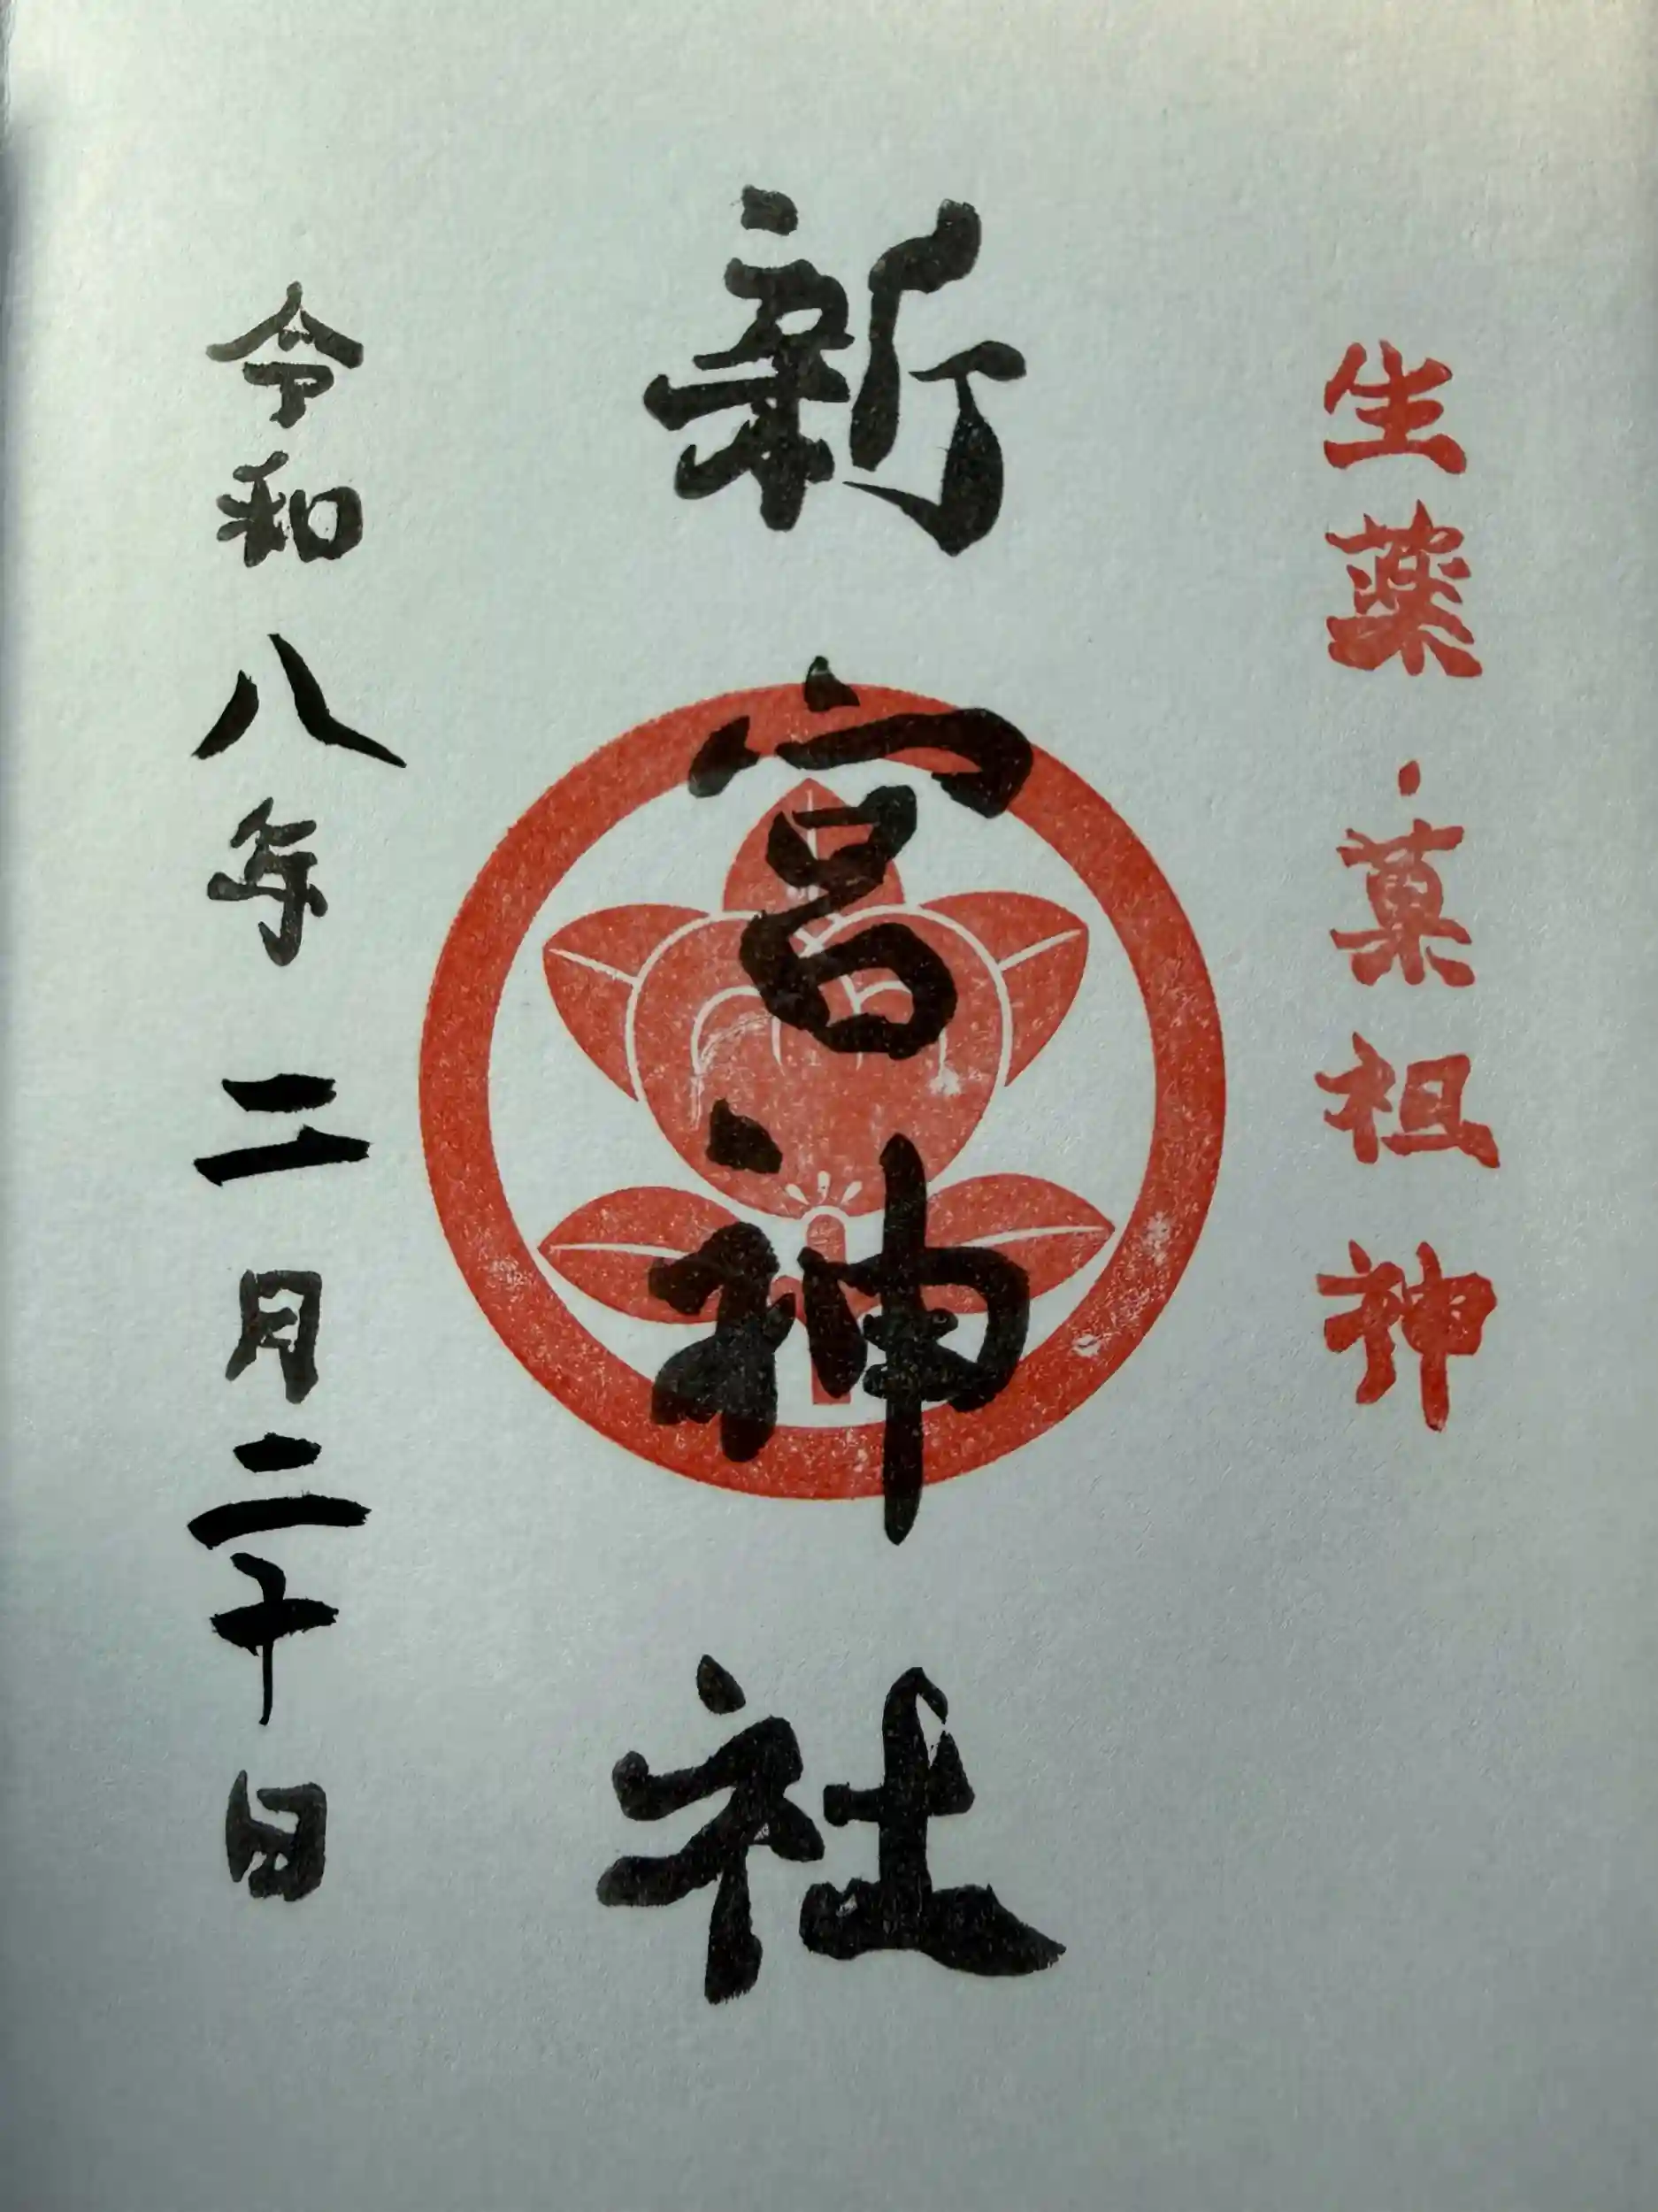 生薬・菓祖神
新宮神社
令和八年二月二十日